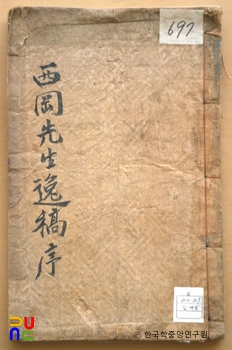 697
西岡先生逸稿序
© 한국학중앙연구원